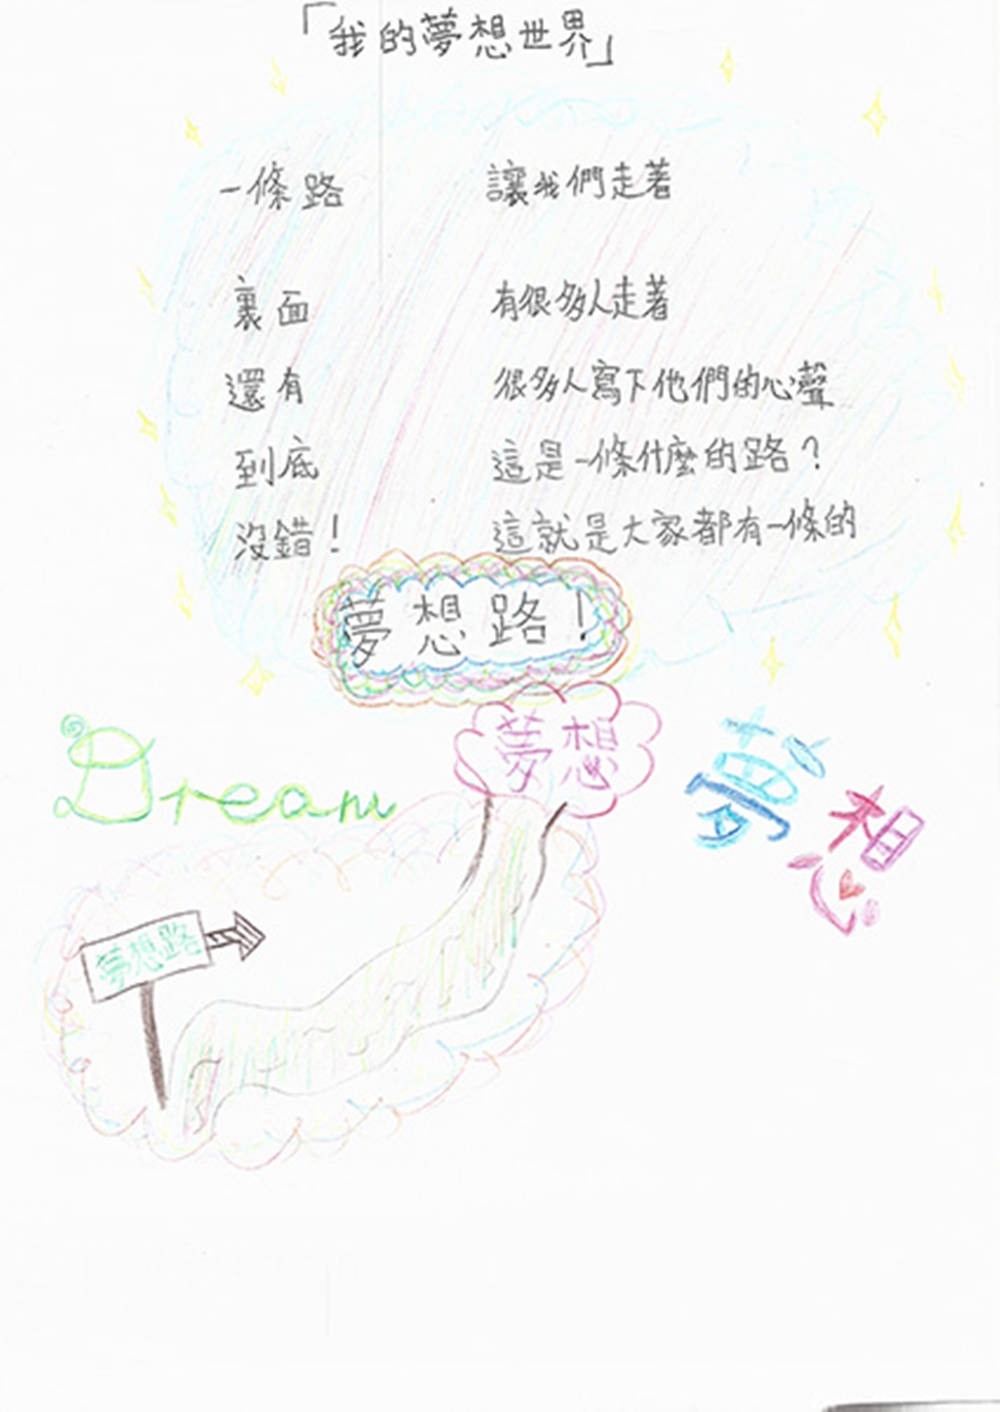 「我的夢想世界」
一條路 讓我們走著
裏面 有很多人走著
還有 很多人寫下他們的心聲
到底 這是一條什麼的路?
沒錯! 這就是大家都有一條的
夢想路!
夢想
Dream
夢想
夢想路